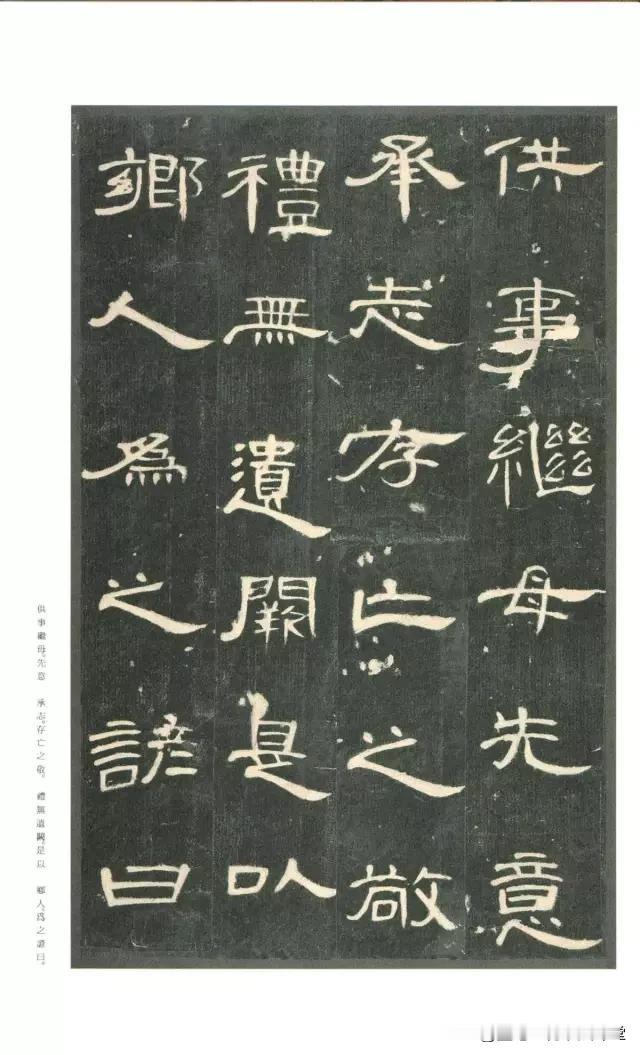 供事繼母先意
承志存亡之敬
禮無遺闕是以
鄉人為之諺曰
供事繼母。先意 承志。存亡之敬。 禮無遺闕。是以 鄉人。爲之諺曰。